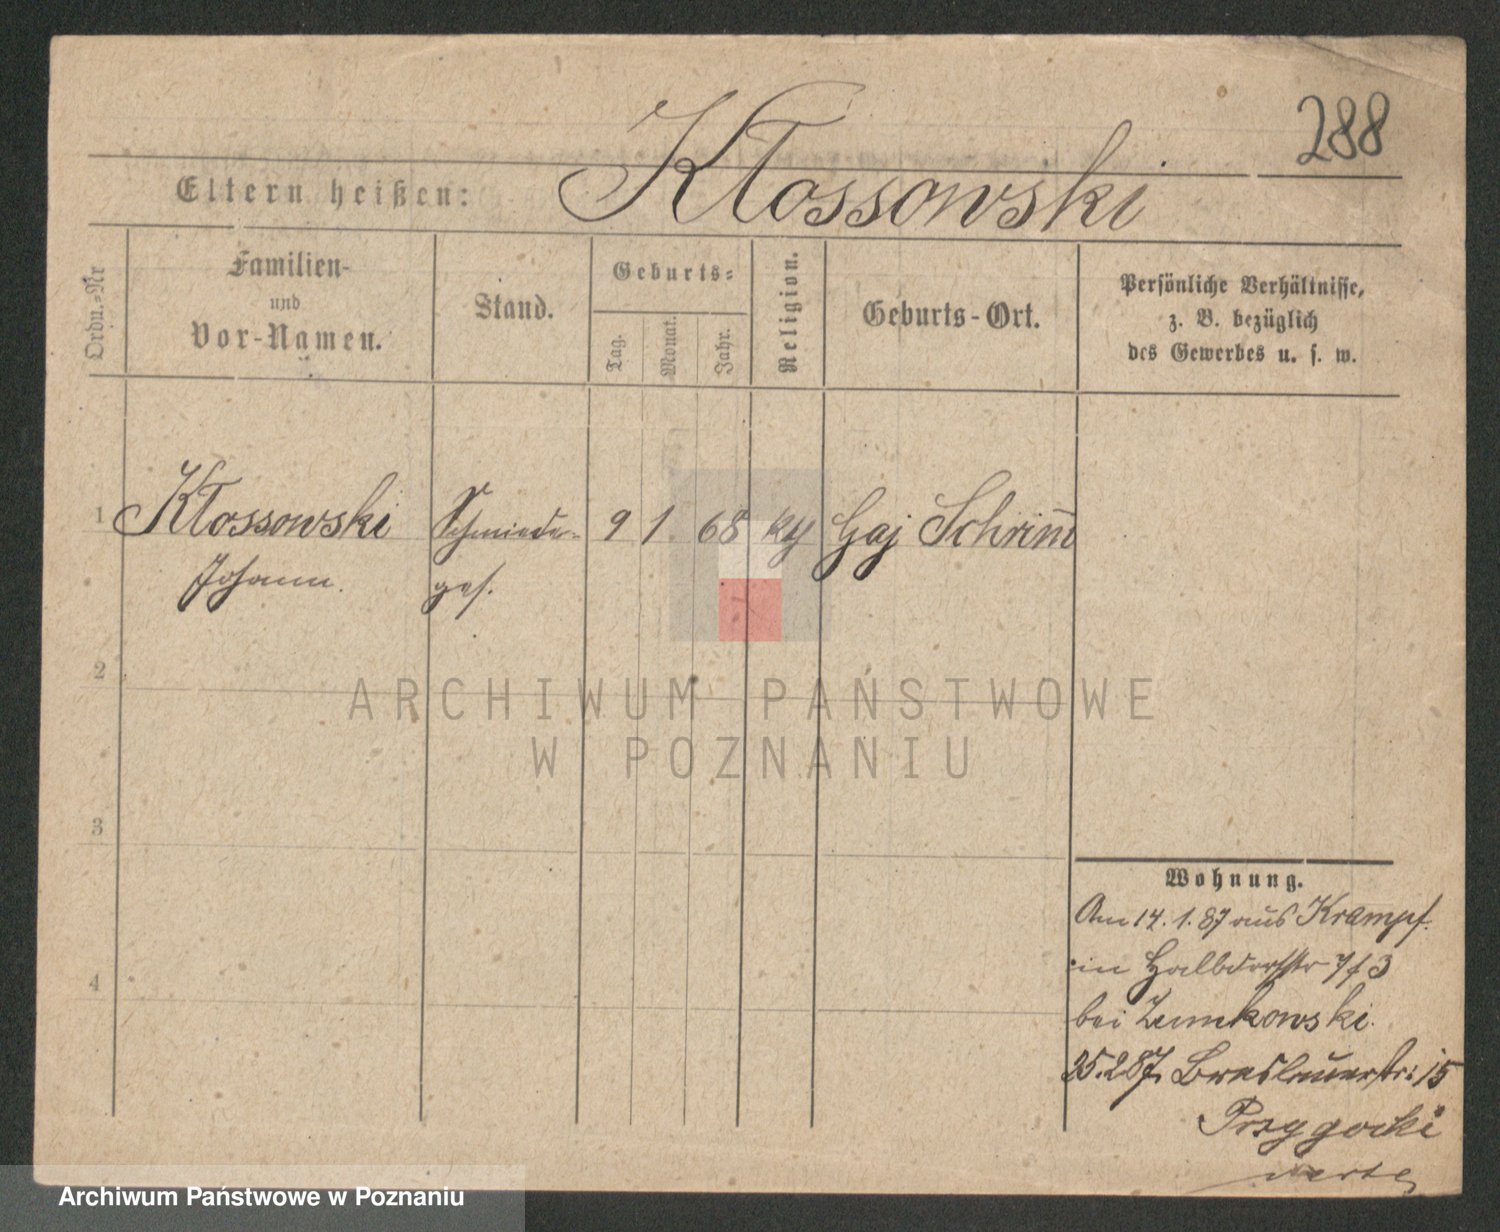 288
Eltern heißen: Kłossowski
Ordn.-Nr
Familien-
und
Vor-Namen.
Stand.
Geburts-
Tag.
Monat.
Jahr.
Religion.
Geburts-Ort.
Persönliche Verhältnisse,
z. B. bezüglich
des Gewerbes u. s. w.
1 Kłossowski Schmiede- 9 1. 68 Gaj Schrim̄
Johann. ges.
2
ARCHIWUM PAŃSTWOWE
W POZNANIU
3
Wohnung.
Am 14. 1. 87 aus Krampf.
in Halbdorfstr
4
bei
25.2 87. Breslauerstr: 15
Przygocki
Archiwum Państwowe w Poznaniu